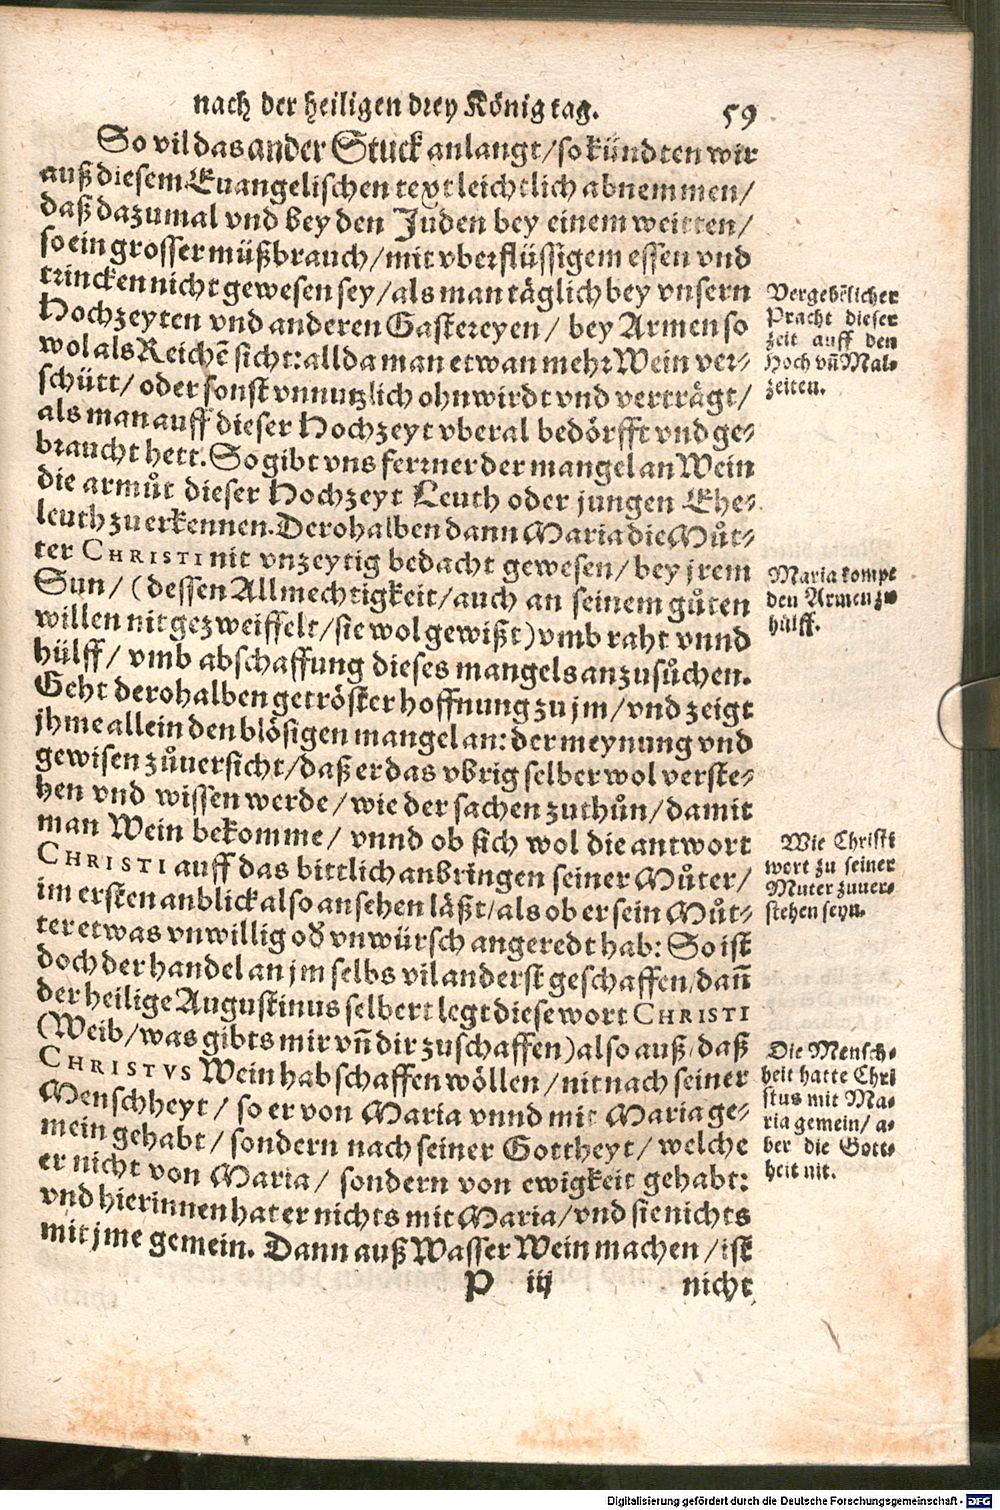 nach der heiligen drey König tag. 59
So vil das ander Stuck anlangt / so kündten wir
auß diesem Euangelischen text leichtlich abnemmen /
daß dazumal vnd bey den Juden bey einem weitten /
so ein grosser müßbrauch / mit vberflüssigem essen vnd
trincken nicht gewesen sey / als man täglich bey vnsern
Hochzeyten vnd anderen Gastereyen / bey Armen so
wol als Reichē sicht: allda man etwan mehr Wein ver⸗
schütt / oder sonst vnnutzlich ohnwirdt vnd verträgt /
als man auff dieser Hochzeyt vberal bedörfft vnd ge⸗
braucht hett. So gibt vns ferrner der mangel an Wein
die armůt dieser Hochzeyt Leuth oder jungen Ehe⸗
leuth zu erkennen. Derohalben dann Maria die Můt⸗
ter CHRISTI nit vnzeytig bedacht gewesen / bey jrem
Sun / (dessen Allmechtigkeit / auch an seinem gůten
willen nit gezweiffelt / sie wol gewißt) vmb raht vnnd
hülff / vmb abschaffung dieses mangels anzusůchen.
Geht derohalben getröster hoffnung zu jm / vnd zeigt
jhme allein den blösigen mangel an: der meynung vnd
gewisen zůuersicht / daß er das vbrig selber wol verste⸗
hen vnd wissen werde / wie der sachen zuthůn / damit
man Wein bekomme / vnnd ob sich wol die antwort
CHRISTI auff das bittlich anbringen seiner Můter /
im ersten anblick also ansehen läßt / als ob er sein Můt⸗
ter etwas vnwillig oď vnwürsch angeredt hab: So ist
doch der handel an jm selbs vil anderst geschaffen / dañ
der heilige Augustinus selbert legt diese wort CHRISTI
(Weib / was gibts mir vñ dir zuschaffen) also auß / daß
CHRISTVS Wein hab schaffen wöllen / nit nach seiner
Menschheyt / so er von Maria vnnd mit Maria ge⸗
mein gehabt / sondern nach seiner Gottheyt / welche
er nicht von Maria / sondern von ewigkeit gehabt:
vnd hierinnen hat er nichts mit Maria / vnd sie nichts
mit jme gemein. Dann auß Wasser Wein machen / ist
P iij nicht
Vergebēlicher
Pracht dieser
zeit auff den
Hoch vñ Mal⸗
zeiten.
Maria kompt
den Armen zu
hülff.
Wie Christi
wort zu seiner
Muter zuuer⸗
stehen seyn.
Die Mensch⸗
heit hatte Chri
stus mit Ma⸗
ria gemein / a⸗
ber die Gott⸗
heit nit.
Digitalisierung gefördert durch die Deutsche Forschungsgemeinschaft - DFG